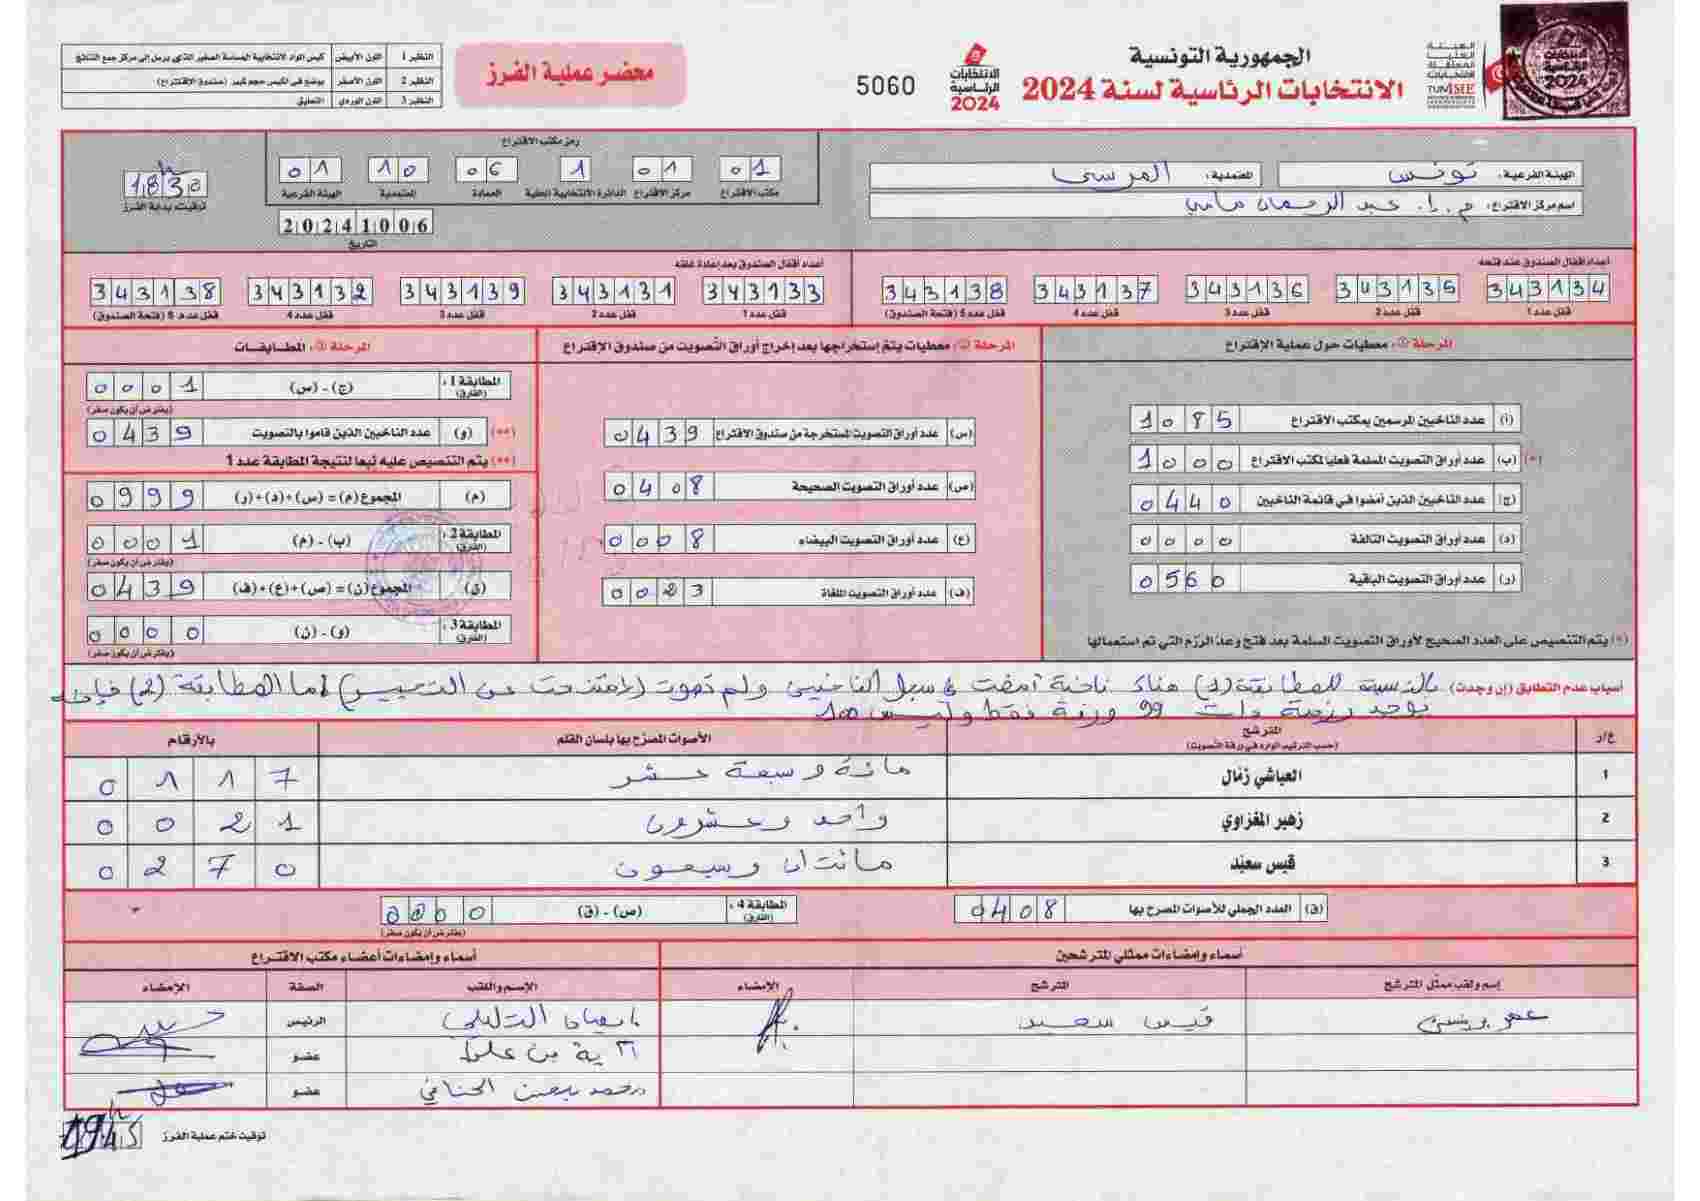 الجمهورية التونسية
الانتخابات الرئاسية لسنة 2024
الهيئة
العليا
المستقلة
للانتخابات
TUNISIE
الانتخابات
الرئاسية
2024
5060
محضر عملية الفرز
النظير 1 اللون الأبيض كيس المواد الانتخابية الحساسة الصغير الذي يرسل إلى مركز جمع النتائج
النظير 2 اللون الأصفر يوضع في الكيس حجم كبير (صندوق الاقتراع)
النظير 3 اللون الوردي التعليق
الهيئة الفرعية: تونس المعتمدية: المرسى
اسم مركز الاقتراع: م. إ. عبد الرحمان مامي
رمز مكتب الاقتراع
01 01 1 06 10 01
مكتب الاقتراع مركز الاقتراع الدائرة الانتخابية الطبية العمادة المعتمدية الهيئة الفرعية
20241006
التاريخ
18h30
توقيت بداية الفرز
أعداد أقفال الصندوق عند فتحه
343134 343135 343136 343137 343138
قفل عدد 1 قفل عدد 2 قفل عدد 3 قفل عدد 4 قفل عدد 5 (فتحة الصندوق)
أعداد أقفال الصندوق بعد إعادة غلقه
343133 343131 343139 343132 343138
قفل عدد 1 قفل عدد 2 قفل عدد 3 قفل عدد 4 قفل عدد 5 (فتحة الصندوق)
المرحلة ①: معطيات حول عملية الإقتراع
(أ) عدد الناخبين المرسمين بمكتب الاقتراع 1085
(*) (ب) عدد أوراق التصويت المسلمة فعليا لمكتب الاقتراع 1000
(ج) عدد الناخبين الذين أمضوا في قائمة الناخبين 0440
(د) عدد أوراق التصويت التالفة 0000
(ر) عدد أوراق التصويت الباقية 0560
(*) يتم التنصيص على العدد الصحيح لأوراق التصويت المسلمة بعد فتح وعد الرزم التي تم استعمالها
المرحلة ②: معطيات يتم إستخراجها بعد إخراج أوراق التصويت من صندوق الإقتراع
(س) عدد أوراق التصويت المستخرجة من صندوق الاقتراع 0439
(ص) عدد أوراق التصويت الصحيحة 0408
(ع) عدد أوراق التصويت البيضاء 0008
(ف) عدد أوراق التصويت الملغاة 0023
المرحلة ③: المطابقات
المطابقة 1: (الفارق) (ج) - (س) 0001
(يفترض أن يكون صفر)
(**) (و) عدد الناخبين الذين قاموا بالتصويت 0439
(**) يتم التنصيص عليه تبعا لنتيجة المطابقة عدد 1
(م) المجموع (م) = (س)+(د)+(ر) 0999
المطابقة 2: (الفارق) (ب) - (م) 0001
(يفترض أن يكون صفر)
(ن) المجموع (ن) = (ص)+(ع)+(ف) 0439
المطابقة 3: (الفارق) (و) - (ن) 0000
(يفترض أن يكون صفر)
أسباب عدم التطابق (إن وجدت) بالنسبة للمطابقة (1) هناك ناخبة أمضت في سجل الناخبين ولم تصوت (امتنعت عن التعبير) أما المطابقة (2) فإنه
يوجد رزمة ذات 99 ورقة فقط وليس 100
ع/ر المترشح الأصوات المصرّح بها بلسان القلم بالأرقام
(حسب الترتيب الوارد في ورقة التصويت)
1 العياشي زمّال مائة وسبعة عشر 0117
2 زهير المغزاوي واحد وعشرون 0021
3 قيس سعيّد مائتان وسبعون 0270
(ق) العدد الجملي للأصوات المصرح بها 0408
المطابقة 4: (الفارق) (ص) - (ق) 0000
(يفترض أن يكون صفر)
أسماء وإمضاءات ممثلي المترشحين
إسم ولقب ممثل المترشح المترشح الإمضاء
عمر قيس سعيد
أسماء وإمضاءات أعضاء مكتب الاقتراع
الإسم واللقب الصفة الإمضاء
التليلي الرئيس
آية بن عضو
محمد عضو
توقيت ختم عملية الفرز 19h45